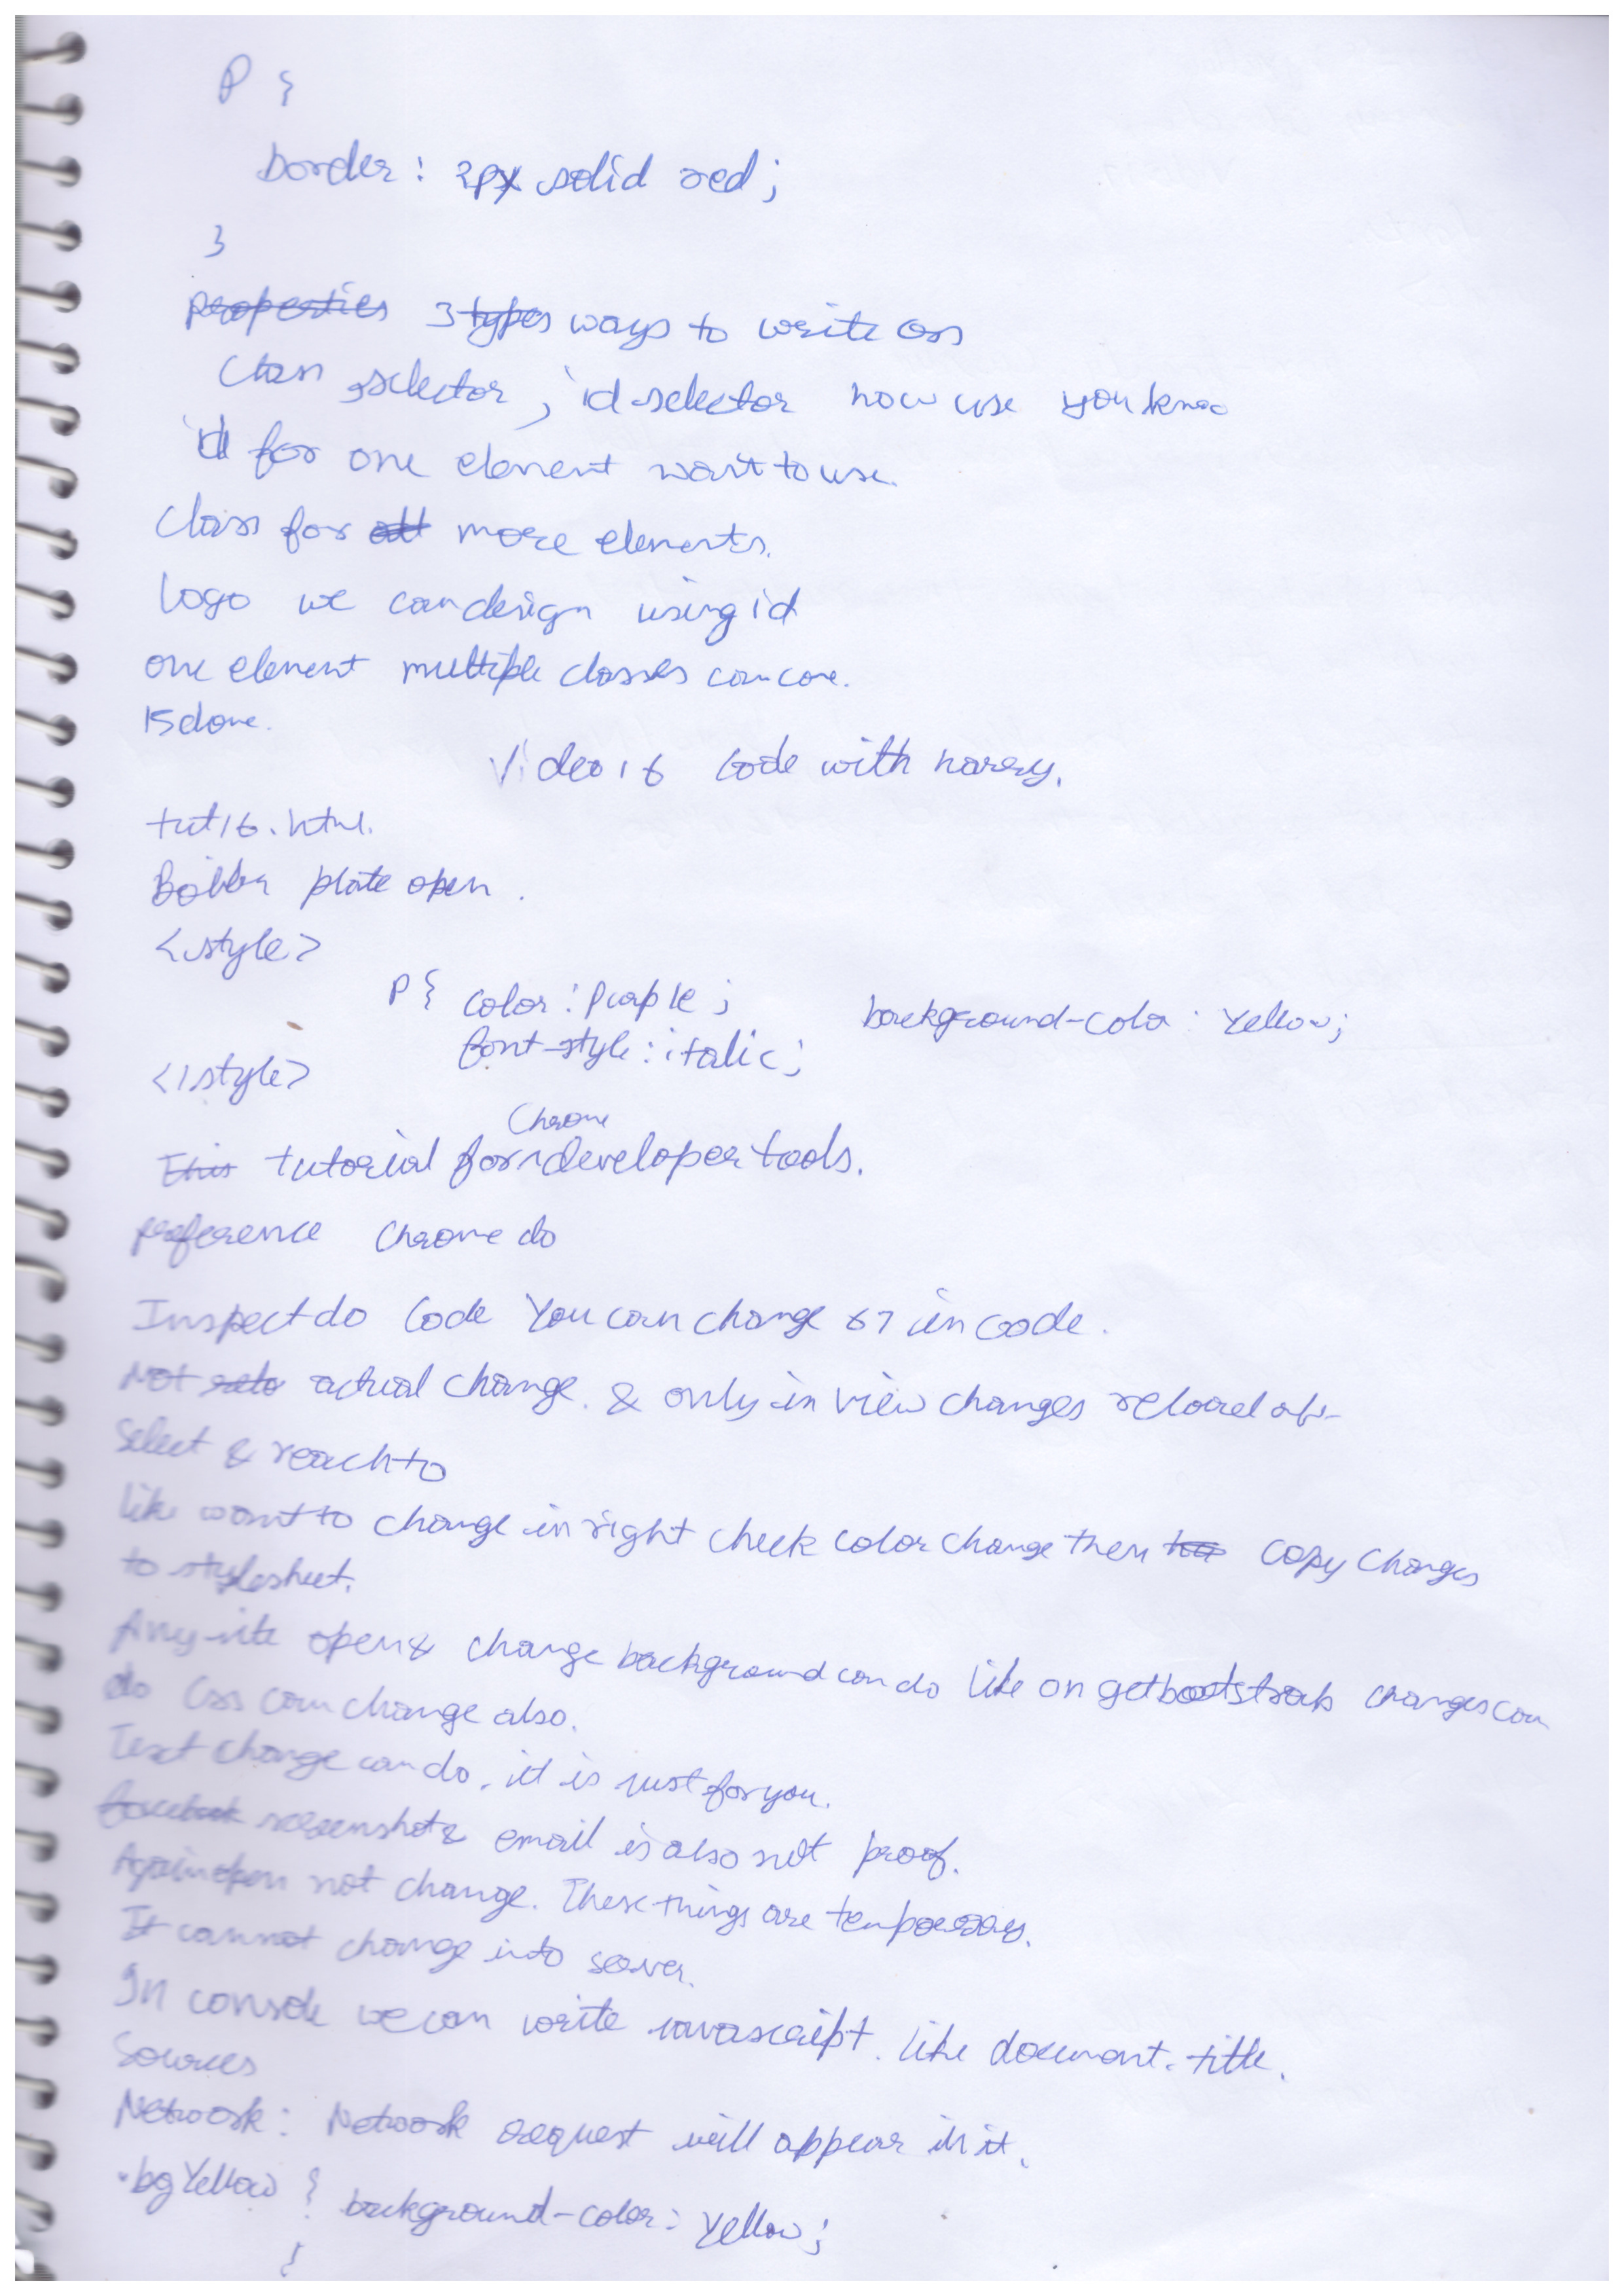 P {
border : 2px solid red ;
}
properties 3 types ways to write css
Class selector , id selector how use you know
id for one element want to use.
Class for all more elements.
Logo we can design using id
one element multiple classes can come.
15 done.
Video 16 Code with harry.
tut16.html.
Boiler plate open .
<style>
P { color : purple ; background-color : yellow ;
font-style : italic ;
</style>
Chrome
This tutorial for developer tools.
preference chrome do
Inspect do Code You can change in code.
Not actual change. & only in view changes reload
Select & reach to
like want to change in right check color change then copy changes
to stylesheet.
Any site open & change background can do like on getbootstrap changes can
do Css can change also.
Text change can do. it is just for you.
facebook screenshot & email is also not proof.
Again open not change. These things are temporary.
It cannot change into server.
In console we can write javascript. like document.title.
Sources
Network : Network request will appear in it.
.bgYellow { background-color : yellow ;
}